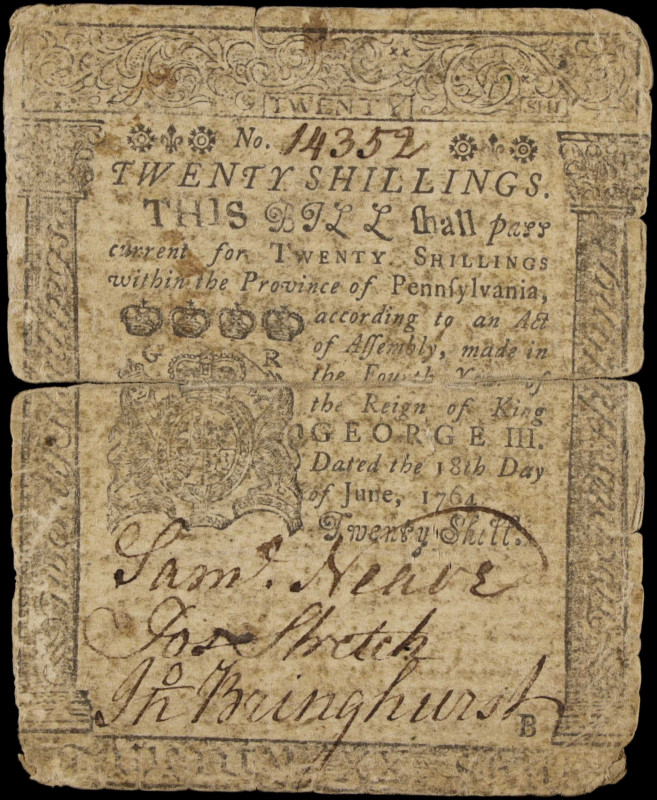 TWENTY SHI
No. 14352
TWENTY SHILLINGS.
THIS BILL ſhall paſs
current for TWENTY SHILLINGS
within the Province of Pennſylvania,
according to an Act
of Aſſembly, made in
the Fourth Year of
the Reign of King
GEORGE III.
Dated the 18th Day
of June, 1764.
Twenty Shill.
G R
Saml. Neave
Jos Stretch
Jno Bringhurst
B